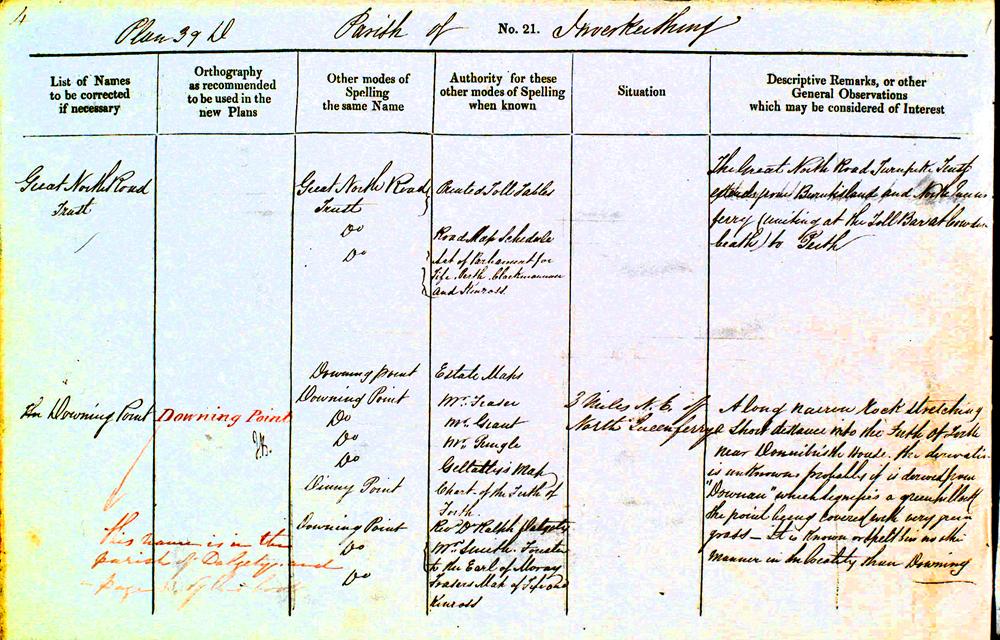 4
Plan 39 D Parish of No. 21. Inverkeithing
List of Names
to be corrected
if necessary
Orthography
as recommended
to be used in the
new Plans
Other modes of
Spelling
the same Name
Authority for these
other modes of Spelling
when known
Situation
Descriptive Remarks, or other
General Observations
which may be considered of Interest
Great North Road
Trust
Great North Road
Trust
Do
Do
Printed Toll Tables
Road Map Schedule
Act of Parliament for
Fife Perth Clackmannan
and Kinross.
The Great North Road Turnpike Trust
extends from Burntisland and North Queens
ferry (uniting at the Toll Bar at Cowden
beath) to Perth
Downing Point
Downing Point
Downing point
Downing Point
Do
Do
Do
Dinny Point
Downing Point
Do
Do
Estate Maps
Mr. Fraser
Mr. Grant
Mr. Pringle
Gellatly's Map
Chart of the Firth of
Forth.
Revd. Dr Ralph Dalgety
Mr. Smith. Forester
to the Earl of Moray
Frasers Map of Fife and
Kinross
3 Miles N.E. of
North Queenferry
A long narrow Rock stretching
a Short distance into the Firth of Forth
near Donnibristle House. the derivation
is unknown probably it is derived from
"Downan" which signifies a green hillock
the point being covered with very green
grass - It is known or spelt in no other
manner in the locality than Downing
This name is in the
parish of Dalgety, and
page of that book